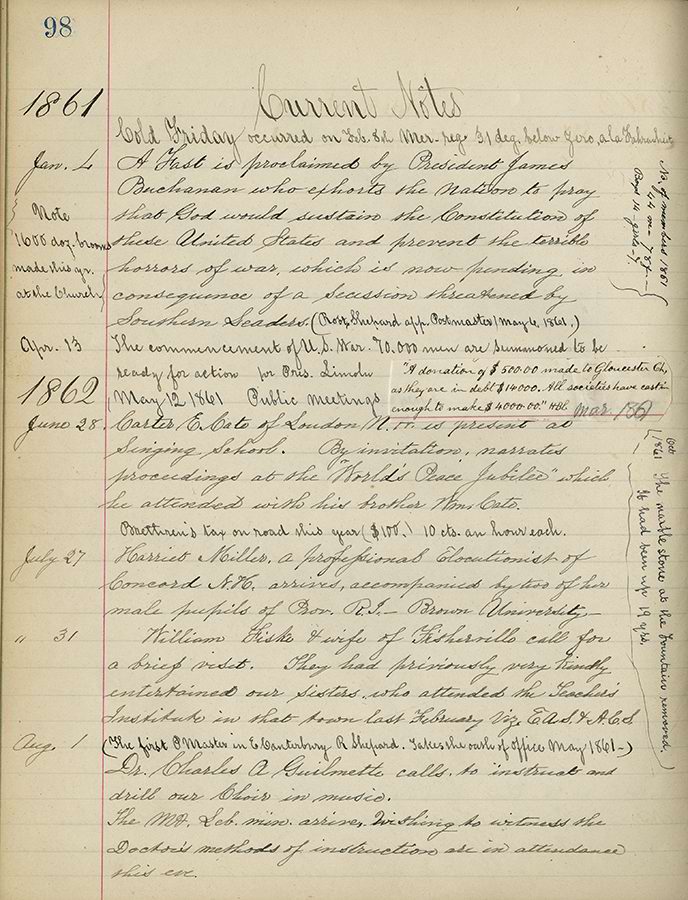 98
Current Notes
1861
Cold Friday occurred on Feb. 8th Mer. reg. 31 deg. below Zero, a la Fahrenheit
Jan. 4
A Fast is proclaimed by President James
Buchanan who exhorts the Nation to pray
that God would sustain the Constitution of
these United States and prevent the terrible
horrors of war, which is now pending in
consequence of a secession threatened by
Southern Leaders. (Robt. Shepard app. Postmaster May 6, 1861.)
Note
1600 doz. brooms
made this yr.
at the Church
No. of members 1861
44 m - 78 f -
Boys 14 - girls -
Apr. 13
The commencement of U.S. War. 70,000 men are summoned to be
ready for action pr Pres. Lincoln
May 12 1861 Public Meetings
"A donation of $500.00 made to Gloucester Ch,
as they are in debt $14000. All societies have cast in
enough to make $4000.00." HBl Mar. 1861
1862
June 28.
Carter E. Cate of Loudon N.H. is present at
Singing School. By invitation, narrates
proceedings at the "World's Peace Jubilee" which
he attended with his brother Wm. Cate.
Brethren's tax on road this year ($100.) 10 cts. an hour each.
Oct
1861
The marble stone at the Fountain removed.
It had been up 19 yrs.
July 27
Harriet Miller, a professional Elocutionist of
Concord N.H. arrives, accompanied by two of her
male pupils of Prov. R.I. - Brown University -
" 31
William Fiske & wife of Fisherville call for
a brief visit. They had priviously very kindly
entertained our sisters who attended the Teacher's
Institute in that town last February Viz. E.A.S. & A.C.S
(The first P Master in E. Canterbury R Shepard. Takes the oath of Office May 1861-)
Aug. 1
Dr. Charles A Guilmette calls to instruct and
drill our Choir in music.
The Mt. Leb. min. arrive, Wishing to witness the
Doctor's methods of instruction are in attendance
this eve.